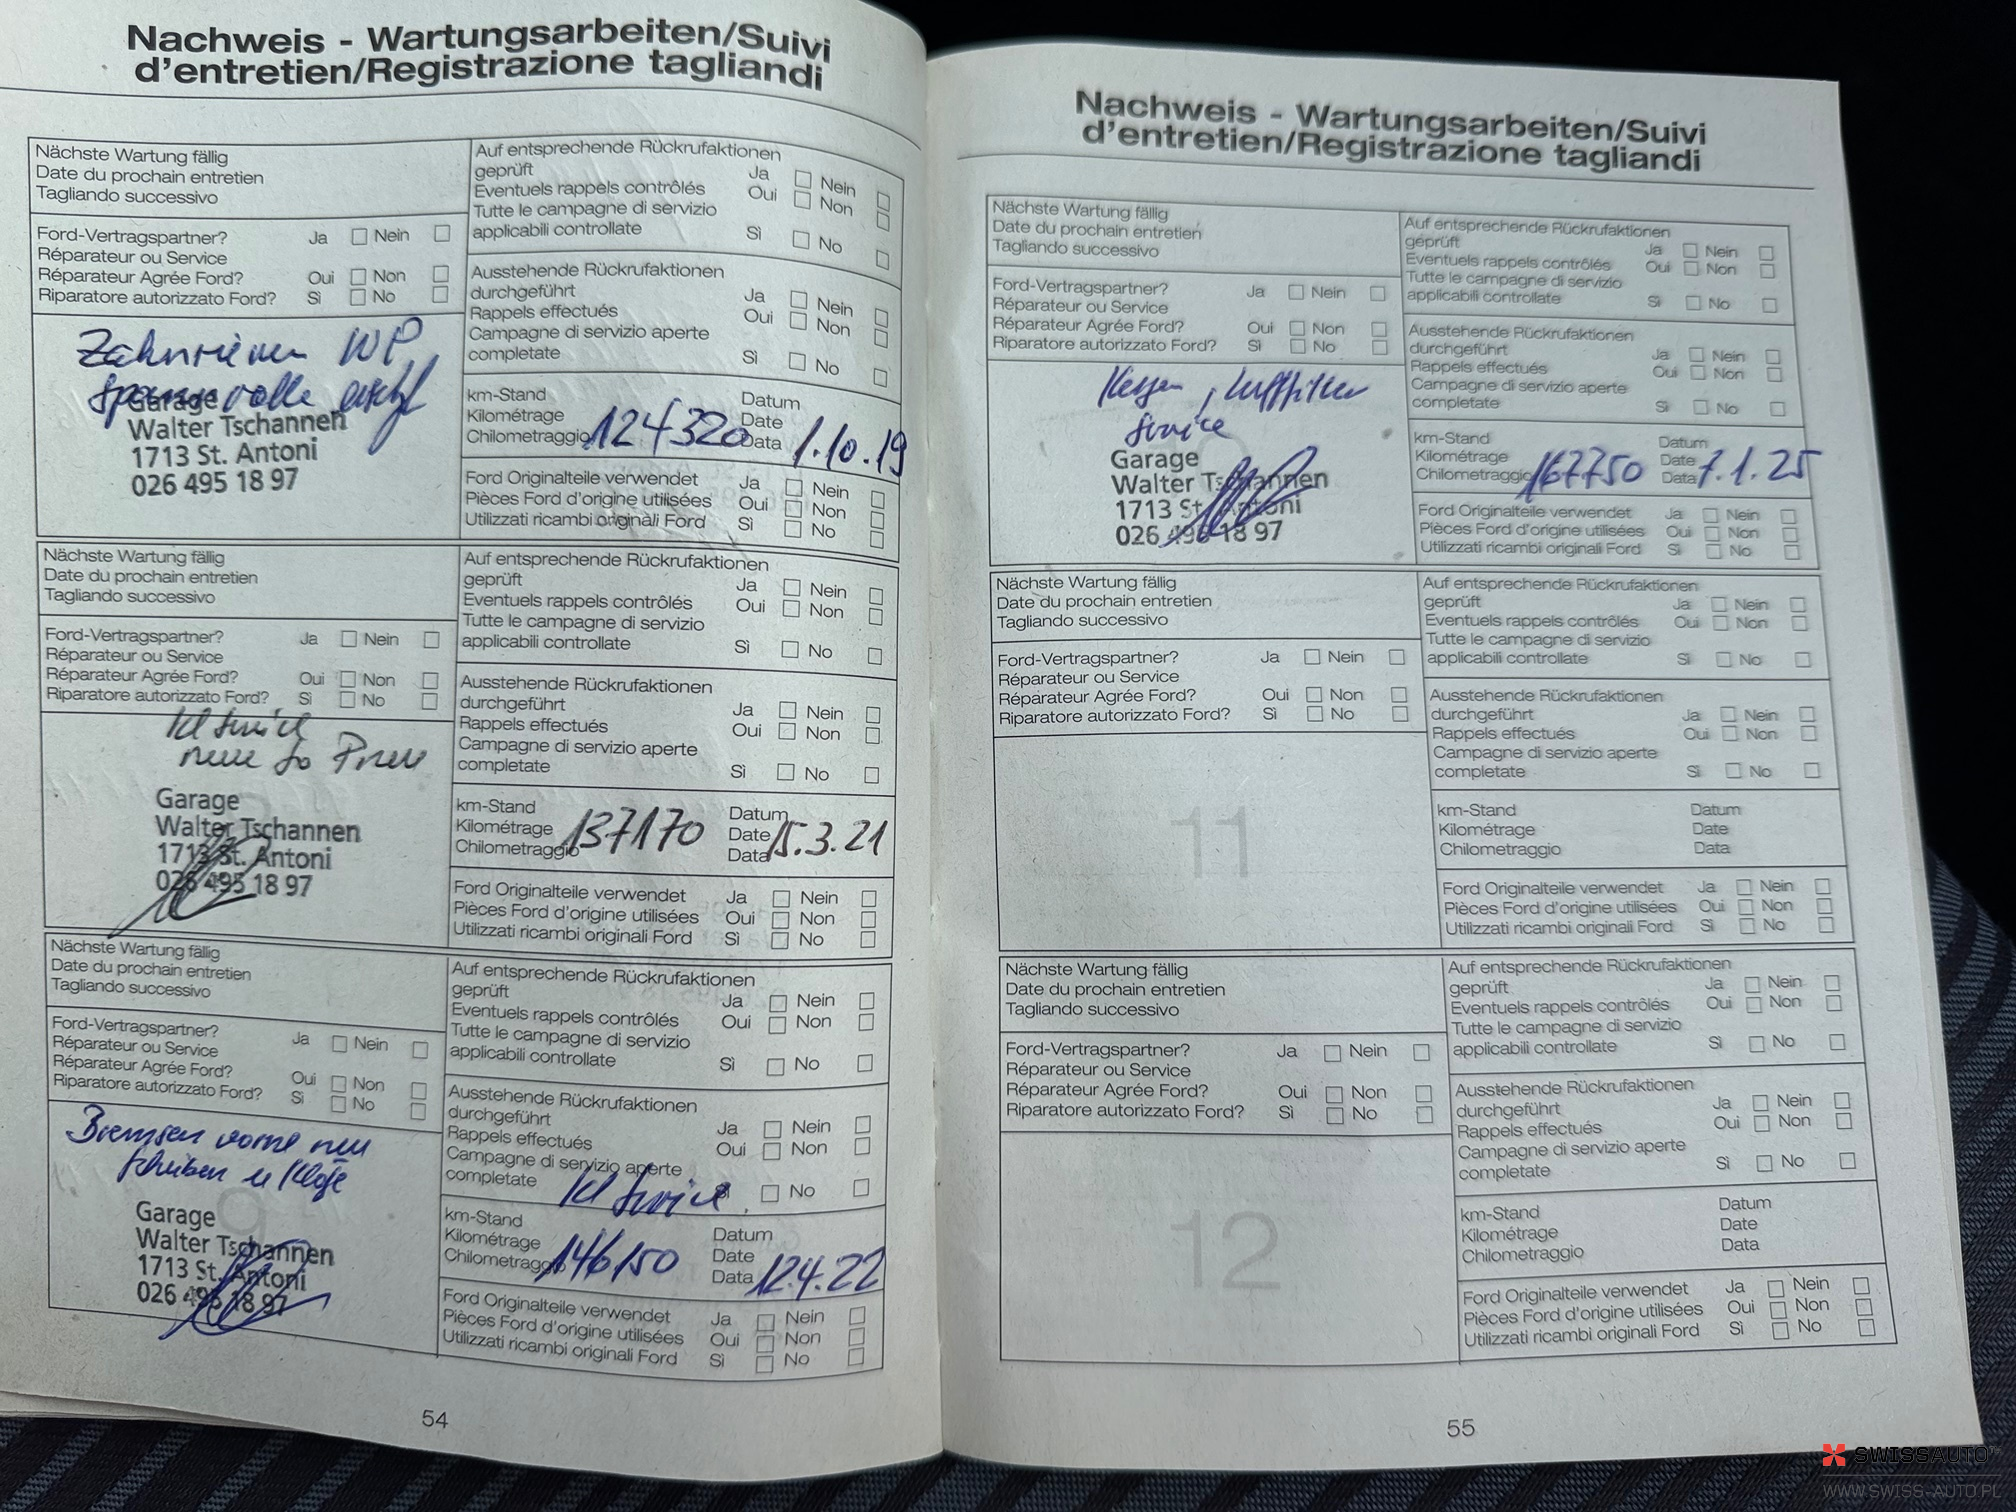 Nachweis - Wartungsarbeiten/Suivi
d'entretien/Registrazione tagliandi
Nächste Wartung fällig
Date du prochain entretien
Tagliando successivo
Ford-Vertragspartner? Ja Nein
Réparateur ou Service
Réparateur Agrée Ford? Oui Non
Riparatore autorizzato Ford? Sì No
Zahnriemen WP
Spannrolle
Garage
Walter Tschannen
1713 St. Antoni
026 495 18 97
Auf entsprechende Rückrufaktionen
geprüft Ja Nein
Eventuels rappels contrôlés Oui Non
Tutte le campagne di servizio
applicabili controllate Sì No
Ausstehende Rückrufaktionen
durchgeführt Ja Nein
Rappels effectués Oui Non
Campagne di servizio aperte
completate Sì No
km-Stand Datum
Kilométrage Date
Chilometraggio 124320 Data 1.10.19
Ford Originalteile verwendet Ja Nein
Pièces Ford d'origine utilisées Oui Non
Utilizzati ricambi originali Ford Sì No
Nächste Wartung fällig
Date du prochain entretien
Tagliando successivo
Ford-Vertragspartner? Ja Nein
Réparateur ou Service
Réparateur Agrée Ford? Oui Non
Riparatore autorizzato Ford? Sì No
Kl Service
neue So Pneu
Garage
Walter Tschannen
1713 St. Antoni
026 495 18 97
Auf entsprechende Rückrufaktionen
geprüft Ja Nein
Eventuels rappels contrôlés Oui Non
Tutte le campagne di servizio
applicabili controllate Sì No
Ausstehende Rückrufaktionen
durchgeführt Ja Nein
Rappels effectués Oui Non
Campagne di servizio aperte
completate Sì No
km-Stand Datum
Kilométrage Date
Chilometraggio 137170 Data 15.3.21
Ford Originalteile verwendet Ja Nein
Pièces Ford d'origine utilisées Oui Non
Utilizzati ricambi originali Ford Sì No
Nächste Wartung fällig
Date du prochain entretien
Tagliando successivo
Ford-Vertragspartner? Ja Nein
Réparateur ou Service
Réparateur Agrée Ford? Oui Non
Riparatore autorizzato Ford? Sì No
Bremsen vorne neu
Scheiben u Klötze
9
Garage
Walter Tschannen
1713 St. Antoni
026 495 18 97
Auf entsprechende Rückrufaktionen
geprüft Ja Nein
Eventuels rappels contrôlés Oui Non
Tutte le campagne di servizio
applicabili controllate Sì No
Ausstehende Rückrufaktionen
durchgeführt Ja Nein
Rappels effectués Oui Non
Campagne di servizio aperte
completate Kl Service Sì No
km-Stand Datum
Kilométrage Date
Chilometraggio 146150 Data 12.4.22
Ford Originalteile verwendet Ja Nein
Pièces Ford d'origine utilisées Oui Non
Utilizzati ricambi originali Ford Sì No
54
Nachweis - Wartungsarbeiten/Suivi
d'entretien/Registrazione tagliandi
Nächste Wartung fällig
Date du prochain entretien
Tagliando successivo
Ford-Vertragspartner? Ja Nein
Réparateur ou Service
Réparateur Agrée Ford? Oui Non
Riparatore autorizzato Ford? Sì No
Kerzen, Luftfilter
Service
Garage
Walter Tschannen
1713 St. Antoni
026 495 18 97
Auf entsprechende Rückrufaktionen
geprüft Ja Nein
Eventuels rappels contrôlés Oui Non
Tutte le campagne di servizio
applicabili controllate Sì No
Ausstehende Rückrufaktionen
durchgeführt Ja Nein
Rappels effectués Oui Non
Campagne di servizio aperte
completate Sì No
km-Stand Datum
Kilométrage Date
Chilometraggio 167750 Data 7.1.25
Ford Originalteile verwendet Ja Nein
Pièces Ford d'origine utilisées Oui Non
Utilizzati ricambi originali Ford Sì No
Nächste Wartung fällig
Date du prochain entretien
Tagliando successivo
Ford-Vertragspartner? Ja Nein
Réparateur ou Service
Réparateur Agrée Ford? Oui Non
Riparatore autorizzato Ford? Sì No
11
Auf entsprechende Rückrufaktionen
geprüft Ja Nein
Eventuels rappels contrôlés Oui Non
Tutte le campagne di servizio
applicabili controllate Sì No
Ausstehende Rückrufaktionen
durchgeführt Ja Nein
Rappels effectués Oui Non
Campagne di servizio aperte
completate Sì No
km-Stand Datum
Kilométrage Date
Chilometraggio Data
Ford Originalteile verwendet Ja Nein
Pièces Ford d'origine utilisées Oui Non
Utilizzati ricambi originali Ford Sì No
Nächste Wartung fällig
Date du prochain entretien
Tagliando successivo
Ford-Vertragspartner? Ja Nein
Réparateur ou Service
Réparateur Agrée Ford? Oui Non
Riparatore autorizzato Ford? Sì No
12
Auf entsprechende Rückrufaktionen
geprüft Ja Nein
Eventuels rappels contrôlés Oui Non
Tutte le campagne di servizio
applicabili controllate Sì No
Ausstehende Rückrufaktionen
durchgeführt Ja Nein
Rappels effectués Oui Non
Campagne di servizio aperte
completate Sì No
km-Stand Datum
Kilométrage Date
Chilometraggio Data
Ford Originalteile verwendet Ja Nein
Pièces Ford d'origine utilisées Oui Non
Utilizzati ricambi originali Ford Sì No
55
SWISSAUTO
WWW.SWISS-AUTO.PL